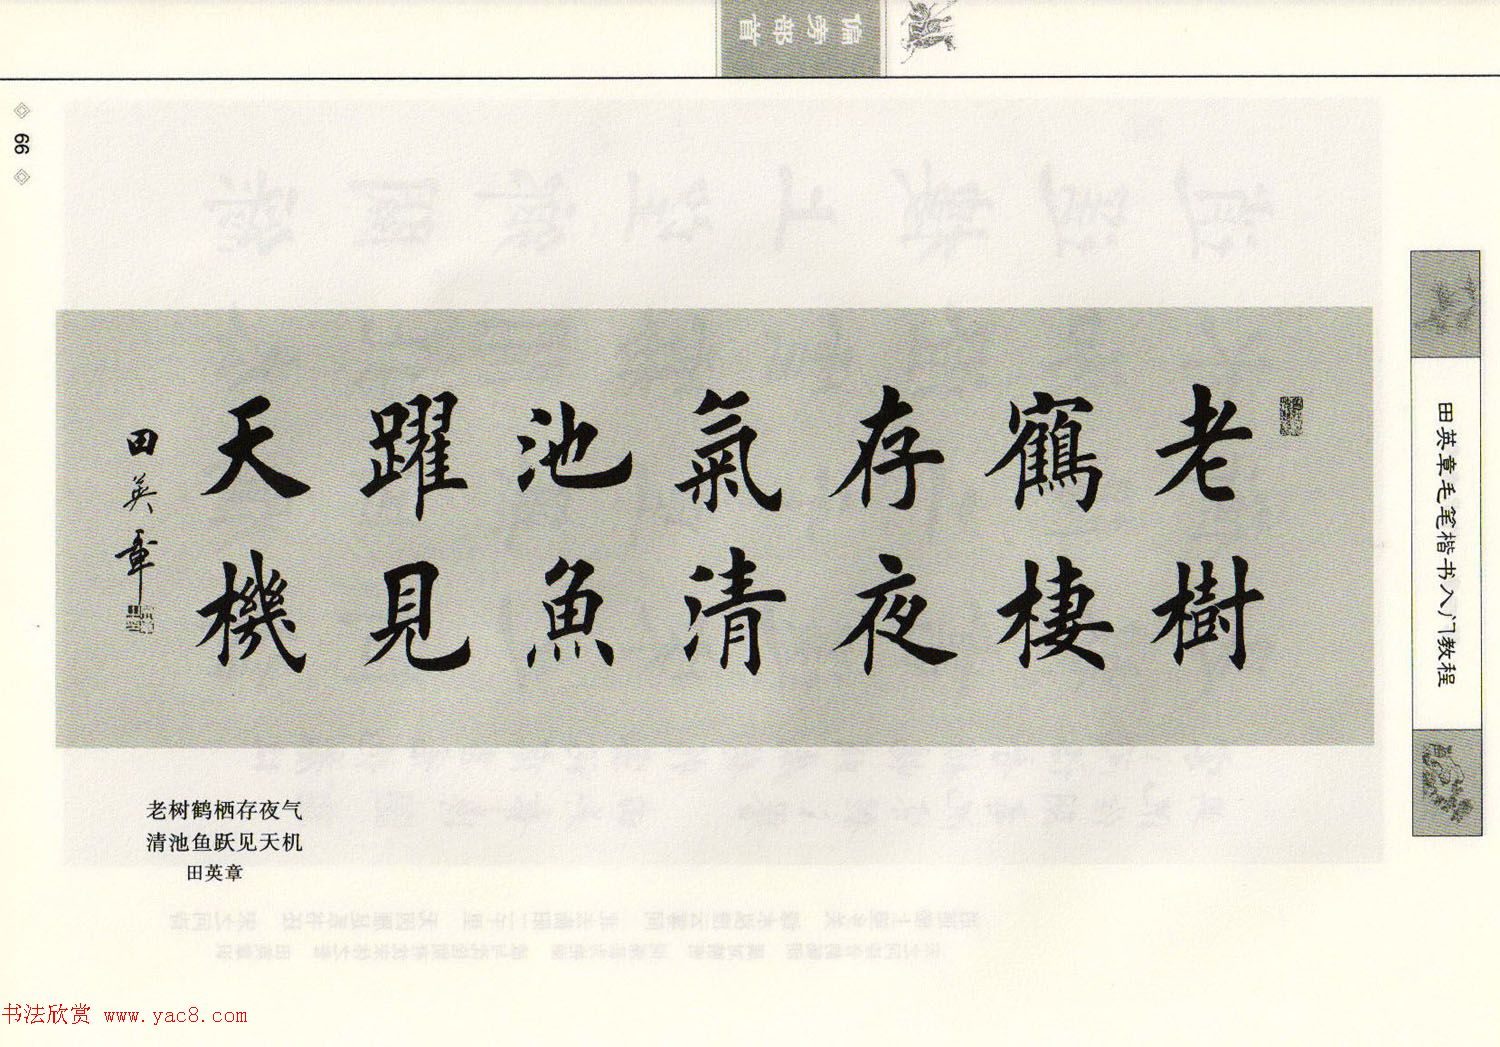 偏旁部首
66
老樹
鶴棲
存夜
氣清
池魚
躍見
天機
田英章
田英章毛笔楷书入门教程
老树鹤栖存夜气
清池鱼跃见天机
田英章
书法欣赏 www.yac8.com